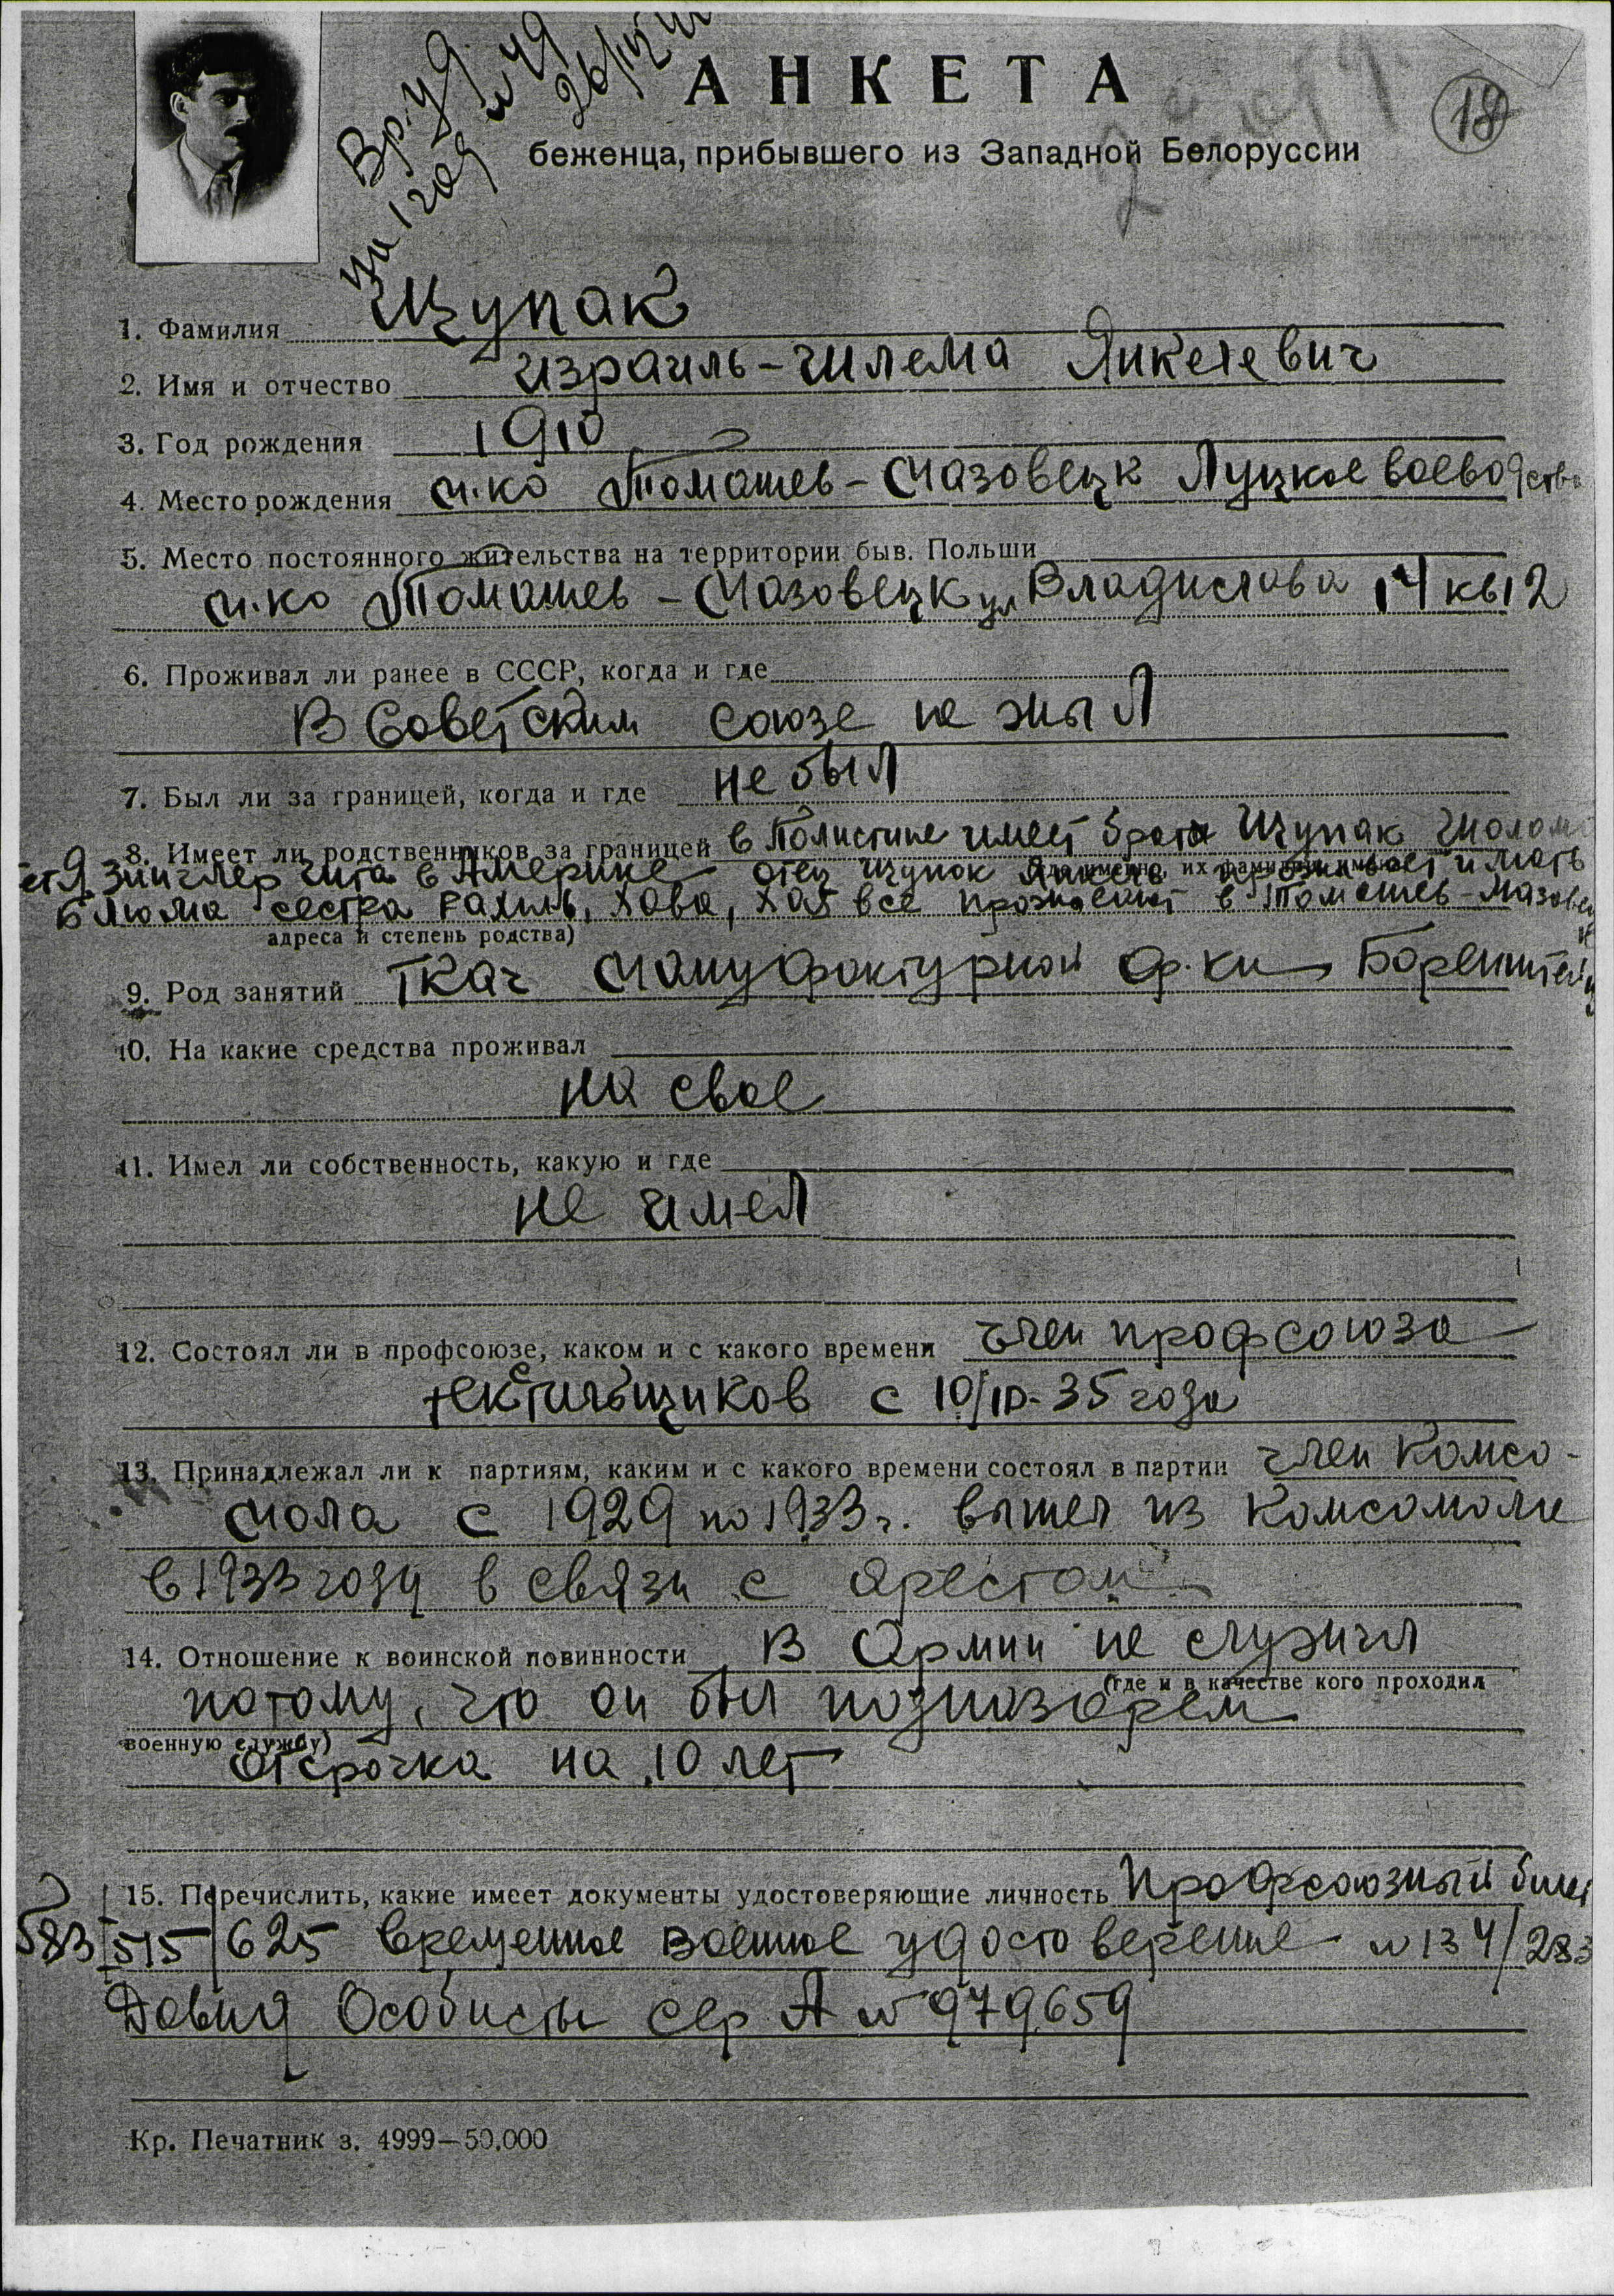 Вр. уд.
на 1 год № 49
26/12
АНКЕТА
18
беженца, прибывшего из Западной Белоруссии
1. Фамилия Щупак
2. Имя и отчество Израиль-Шлема Янкелевич
3. Год рождения 1910
4. Место рождения м.ко Томашев-Мазовецк Луцкое воеводство
5. Место постоянного жительства на территории быв. Польши
м.ко Томашев-Мазовецк ул Владислава 14 кв 12
6. Проживал ли ранее в СССР, когда и где
В Советским союзе не жыл
7. Был ли за границей, когда и где не был
8. Имеет ли родственников за границей в Полистине имеет брата Щупак Шолом
тетя Зинглер Чита в Америке отец Щупак Янкель проживает и мать
Блюма сестра Рахиль, Хава, Хая все проживают в Томашев-Мазовецк
адреса и степень родства)
9. Род занятий Ткач Мануфактурной ф.ки Боренштейн
10. На какие средства проживал
на свое
11. Имел ли собственность, какую и где
не имел
12. Состоял ли в профсоюзе, каком и с какого времени член профсоюза
текстильщиков с 10/IV-35 года
13. Принадлежал ли к партиям, каким и с какого времени состоял в партии член Комсо-
мола с 1929 по 1933 г. вышел из комсомола
в 1933 году в связи с арестом
14. Отношение к воинской повинности В Армии не служил
(где и в качестве кого проходил
потому, что он был
военную службу)
отсрочка на 10 лет
15. Перечислить, какие имеет документы удостоверяющие личность Профсоюзный билет
583/515/625 временное военное удостоверение № 134/283
Довид Особисты сер А № 979659
Кр. Печатник з. 4999—50.000